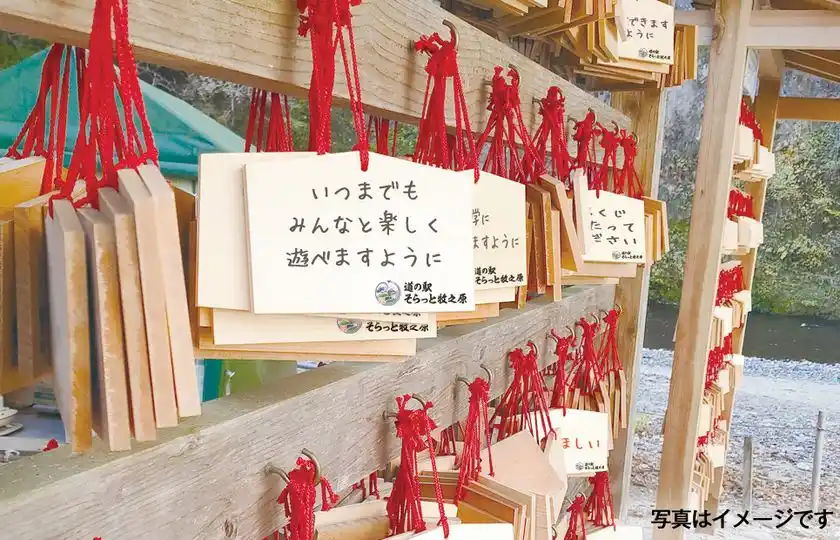 できます
ように
道の駅
そらっと牧之原
いつまでも
みんなと楽しく
遊べますように
道の駅
そらっと牧之原
学に
ますように
道の駅
そらっと牧之原
くじ
たって
ださい
道の駅
そらっと牧之原
そらっと牧之原
ほしい
道の駅
そらっと牧之原
写真はイメージです